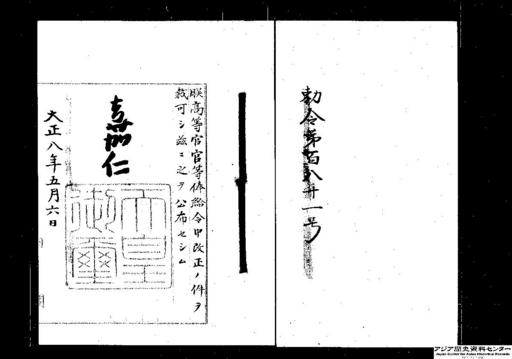 勅令第百八十一号
朕高等官官等俸給令中改正ノ件ヲ
裁可シ茲ニ之ヲ公布セシム
嘉仁
天皇
御璽
大正八年五月六日
アジア歴史資料センター
Japan Center for Asian Historical Records